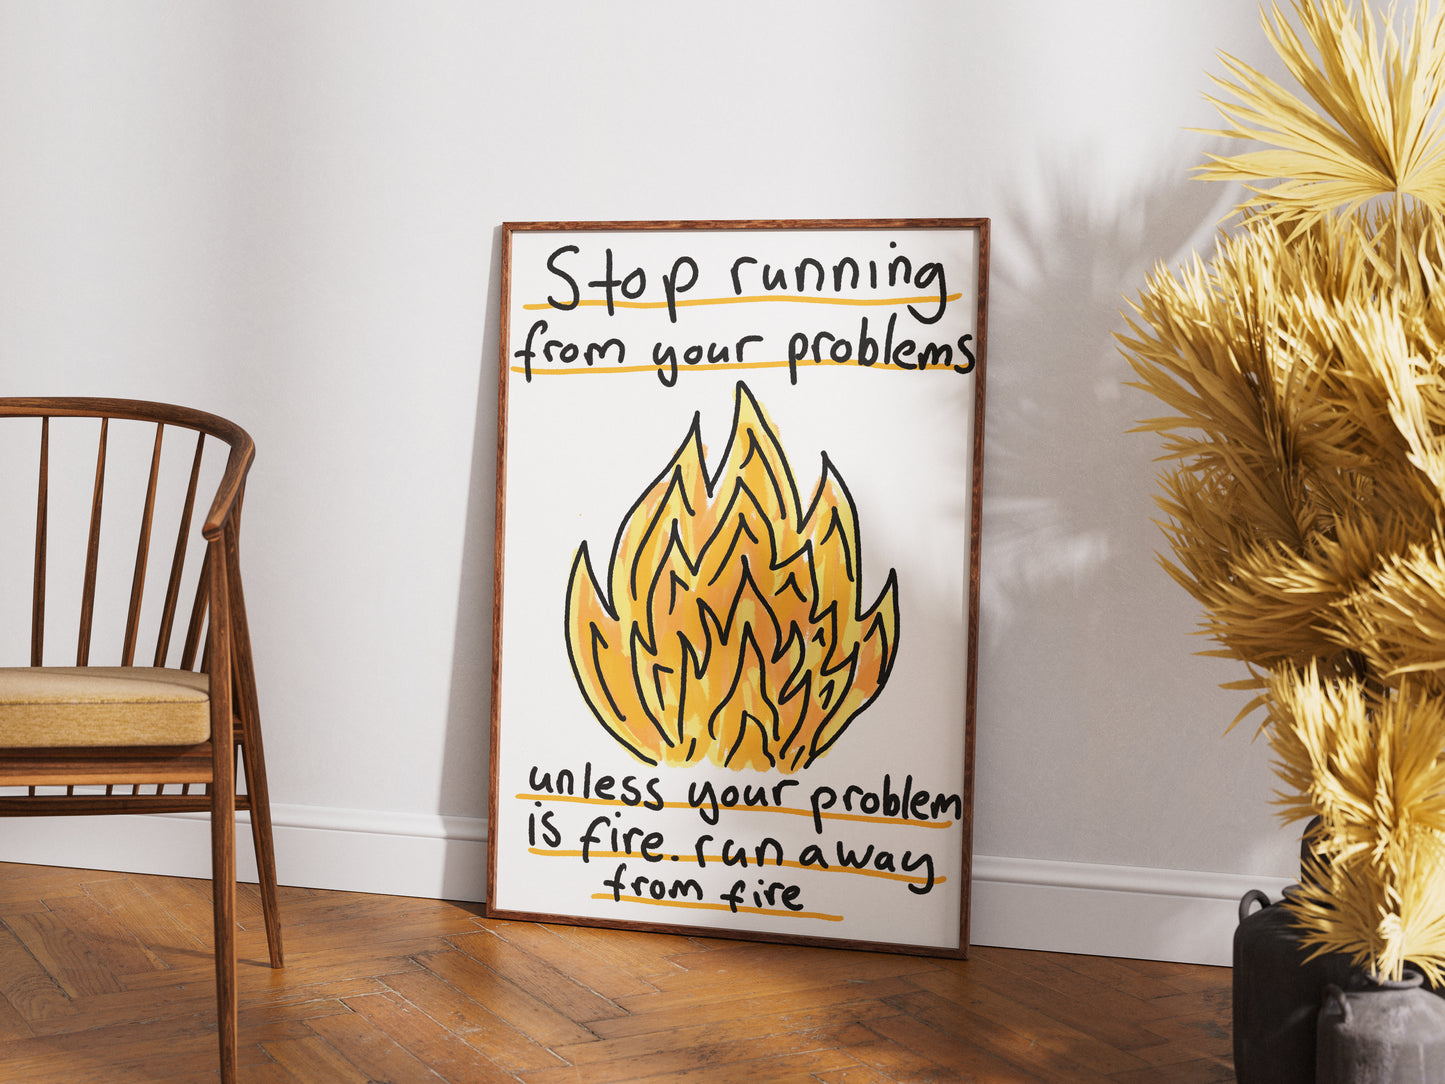 Stop running
from your problems
unless your problem
is fire. run away
from fire